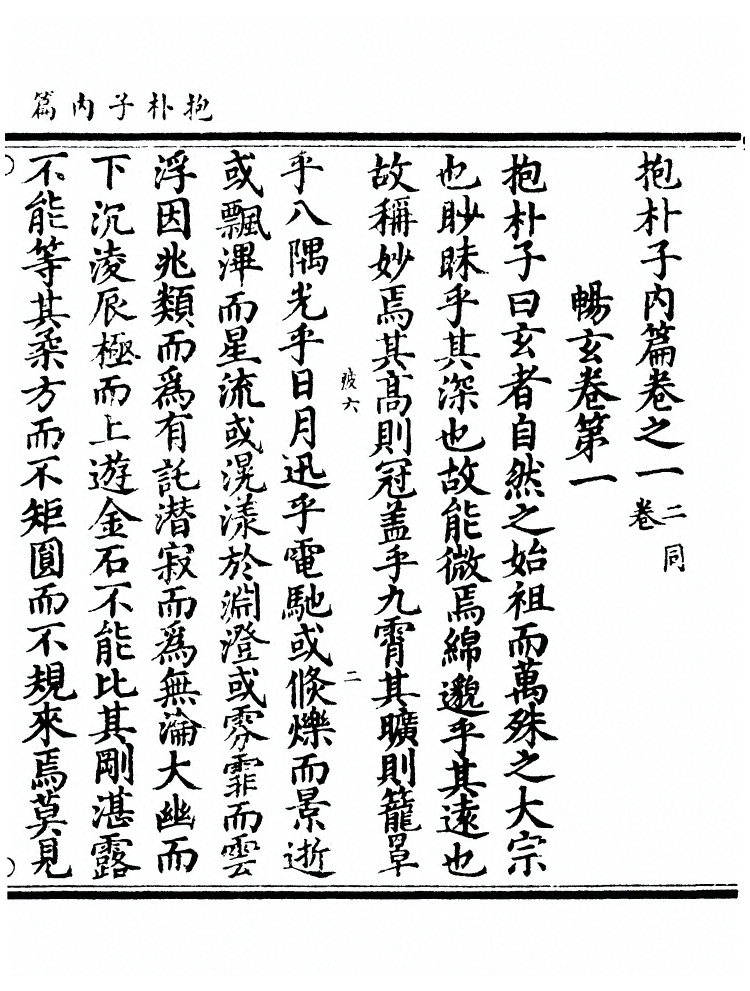 抱朴子内篇
抱朴子内篇卷之一 二同卷
暢玄卷第一
抱朴子曰玄者自然之始祖而萬殊之大宗
也眇昧乎其深也故能微焉綿邈乎其遠也
故稱妙焉其髙則冠盖乎九霄其曠則籠罩
疲六 二
乎八隅光乎日月迅乎電馳或倏爍而景逝
或飄滭而星流或滉漾於淵澄或雰霏而雲
浮因兆類而爲有託潜寂而爲無淪大幽而
下沉淩辰極而上遊金石不能比其剛湛露
不能等其柔方而不矩圓而不規來焉莫見